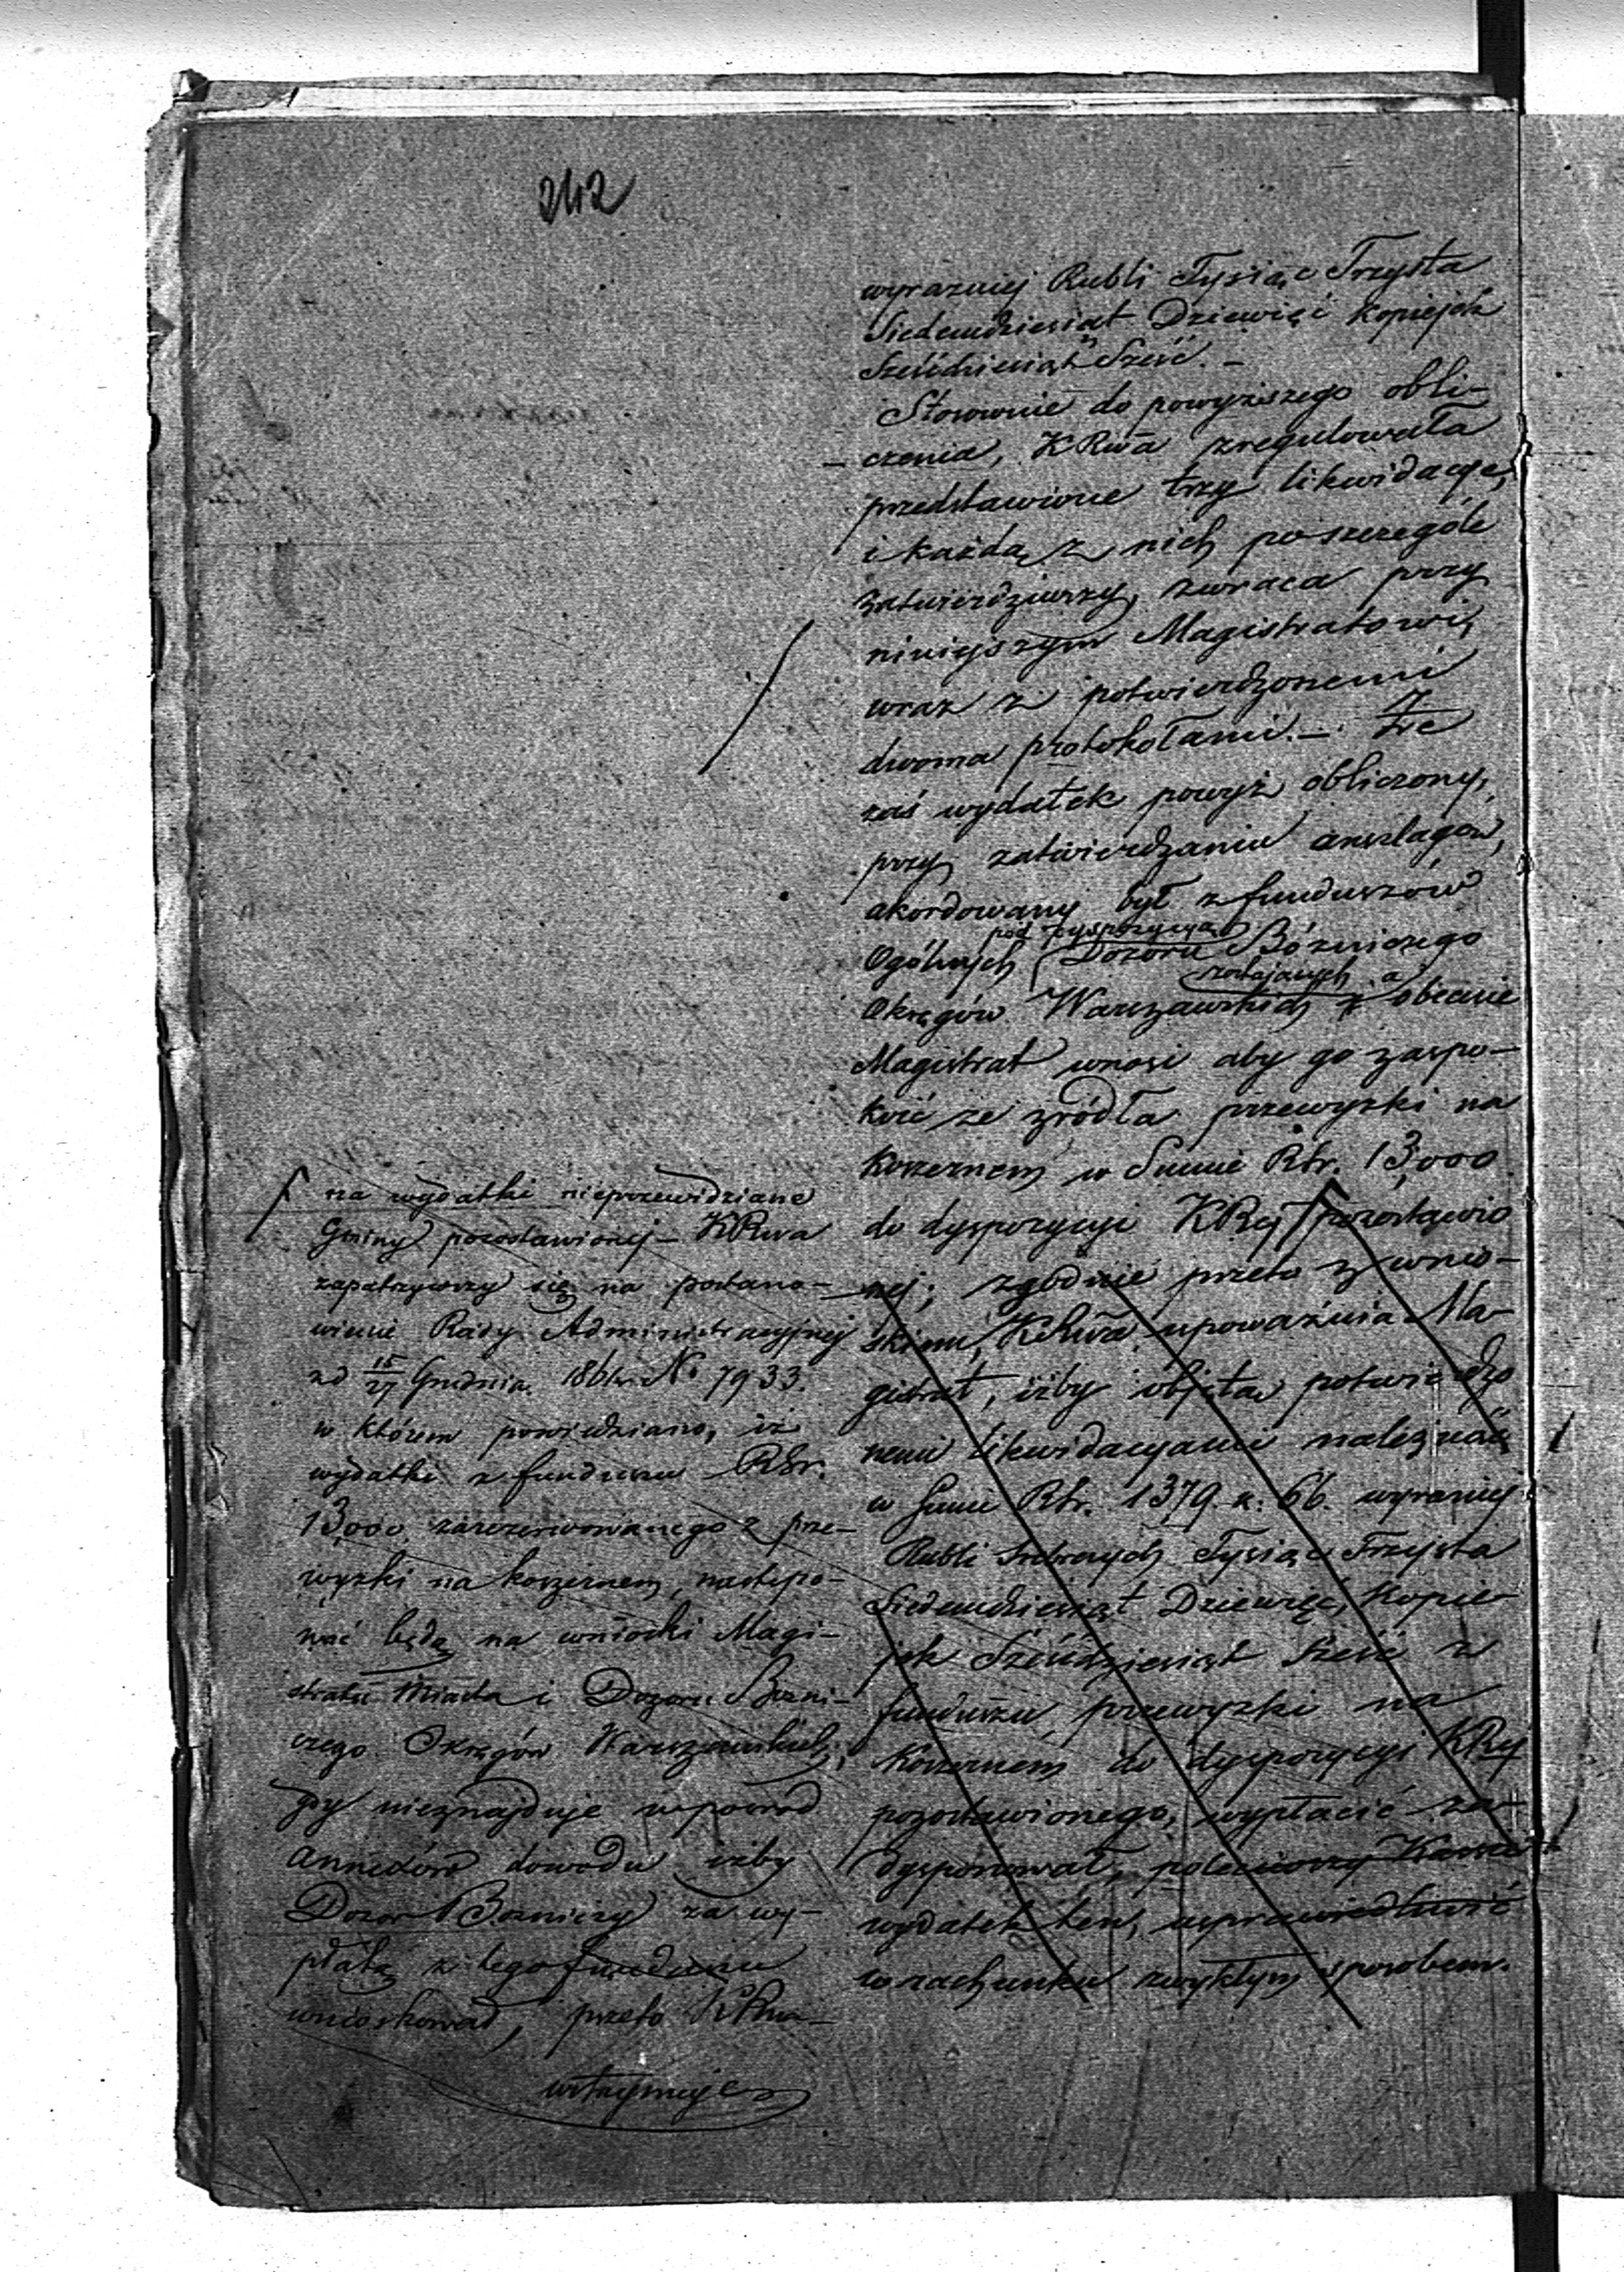 242
wyrazniej Rubli Tysiąc Trzysta
Siedemdziesiąt Dziewięć kopiejek
Sześćdziesiąt Sześć. –
Stosownie do powyższego obli-
czenia, KRwa zregulowała
przedstawione trzy likwidacye,
i każdą z nich poszczególe
zatwierdziwszy, zwraca przy
niniejszym Magistratowi,
wraz z potwierdzonemi
dwoma protokołami. – Że
zaś wydatek powyż obliczony,
przy zatwierdzaniu anszlagów,
akordowany był z funduszów
pod dyspozycyą
Ogólnych Dozoru Bóżniczego
zostających a
Okręgów Warszawskich obecnie
Magistrat wnosi aby go zaspo-
koić ze źródła przewyżki na
koszernem w Summie Rsr. 13,000
do dyspozycyi KRej pozostawio
nej; zgodnie przeto z wnio-
skiem, KRwa upoważnia Ma-
gistrat, iżby objęta potwierdzo
nemi likwidacyami należność
w Summie Rsr. 1379 k. 66. wyrazniej
Rubli Srebrnych Tysiąc Trzysta
Siedemdziesiąt Dziewięć, Kopie
jek Sześćdziesiąt Sześć z
funduszu przewyżki na
Koszernem do dyspozycyi KRej
pozostawionego, wypłacić za-
dysponował, poleciwszy Kassie
wydatek ten, usprawiedliwić
w rachunku zwykłym sposobem.
na wydatki nieprzewidziane
Gminy pozostawionej – KRwa
zapatrzywszy się na postano-
wienie Rady Administracyjnej
z d 15/27 Grudnia 1861 r. No 7933.
w którem powiedziano, iż
wydatki z funduszu RSr.
13,000 zarezerwowanego z prze-
wyżki na koszernem, nastepo-
wać będą na wnioski Magi-
stratu Miasta i Dozoru Bożni-
czego Okręgów Warszawskich;
gdy nieznajduje wpośród
annexów dowodu iżby
Dozor Bożniczy za wy-
płatą z tego funduszu
wnioskował, przeto KRwa
wstrzymuje